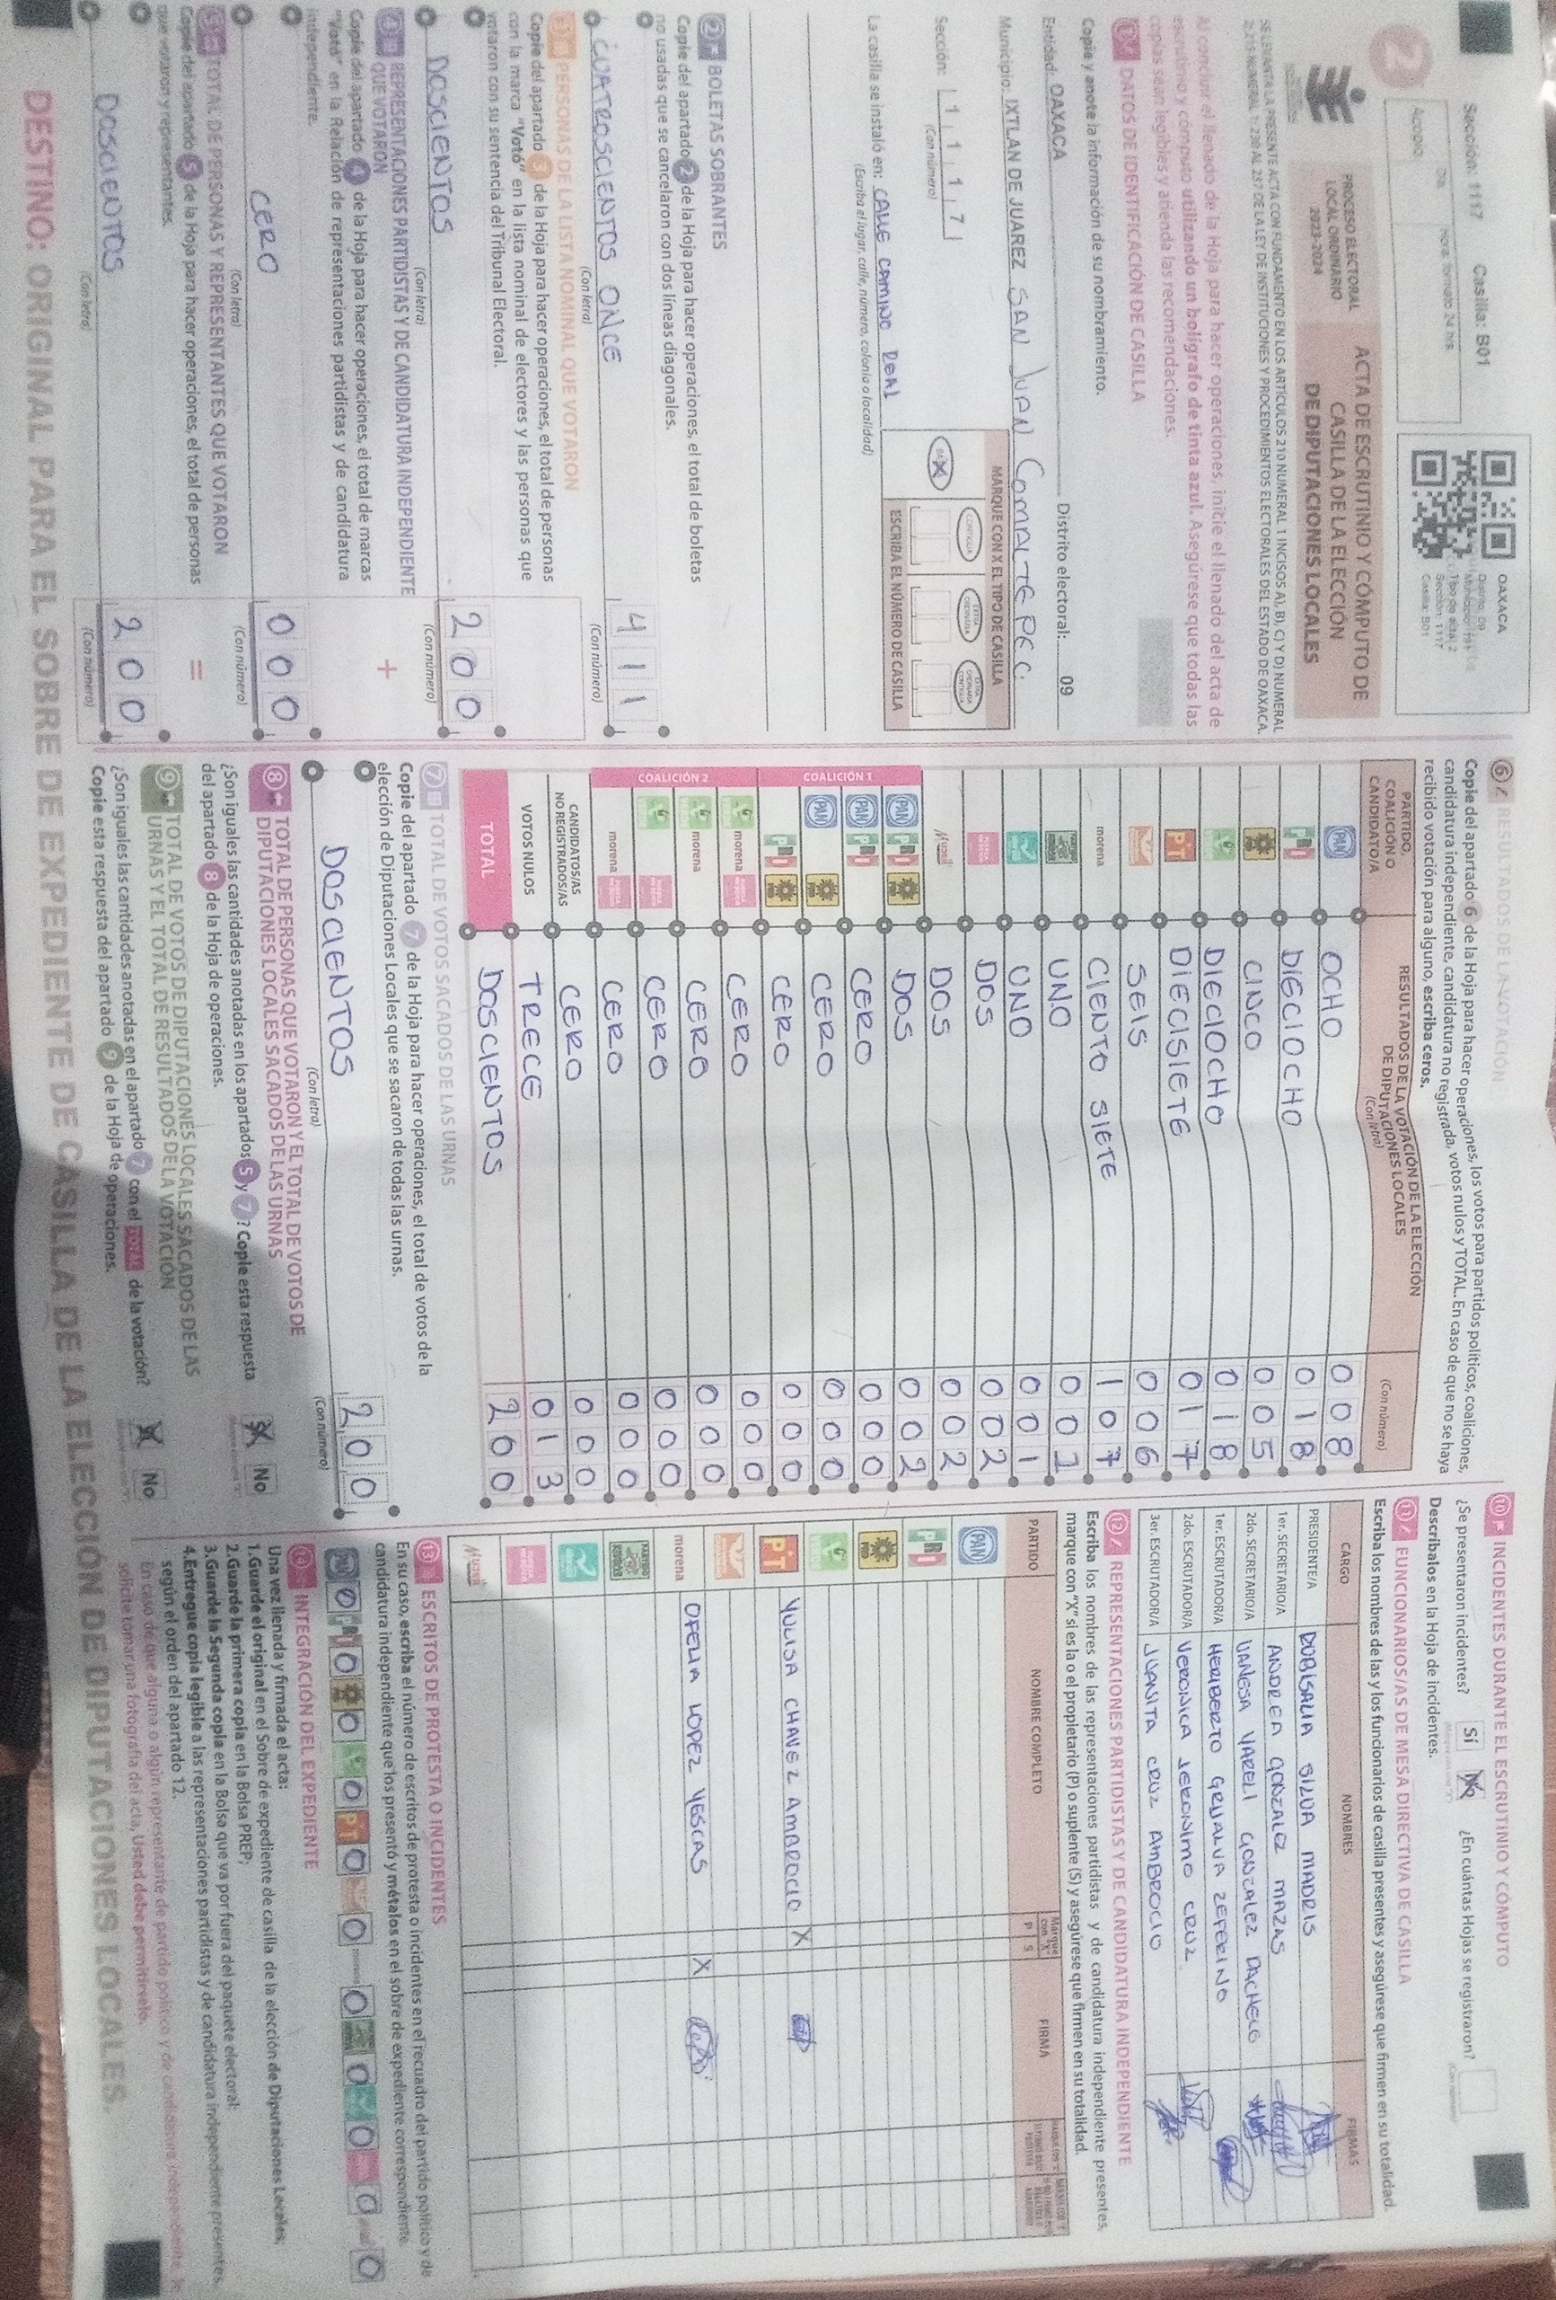 Sección: 1117 Casilla: B01
Acopio
Hora: formato 24 hrs
2
OAXACA
Sección: 1117
Casilla: B01
PROCESO ELECTORAL
LOCAL ORDINARIO
2023-2024
ACTA DE ESCRUTINIO Y CÓMPUTO DE
CASILLA DE LA ELECCIÓN
DE DIPUTACIONES LOCALES
SE LEVANTA LA PRESENTE ACTA CON FUNDAMENTO EN LOS ARTÍCULOS 210 NUMERAL 1 INCISOS A), B), C) Y D) NUMERAL
DE LA LEY DE INSTITUCIONES Y PROCEDIMIENTOS ELECTORALES DEL ESTADO DE OAXACA.
Al concluir el llenado de la Hoja para hacer operaciones, inicie el llenado del acta de
escrutinio y cómputo utilizando un bolígrafo de tinta azul. Asegúrese que todas las
copias sean legibles y atienda las recomendaciones.
1 DATOS DE IDENTIFICACIÓN DE CASILLA
Copie y anote la información de su nombramiento.
Entidad: OAXACA Distrito electoral: 09
Municipio: IXTLAN DE JUAREZ SAN JUAN COMALTEPEC.
Sección: 1 1 1 7
(Con número)
MARQUE CON X EL TIPO DE CASILLA
X
ESCRIBA EL NÚMERO DE CASILLA
La casilla se instaló en: CALLE CAMINO REAL
(Escriba el lugar, calle, número, colonia o localidad)
2 BOLETAS SOBRANTES
Copie del apartado 2 de la Hoja para hacer operaciones, el total de boletas
no usadas que se cancelaron con dos líneas diagonales.
CUATROSCIENTOS ONCE 4 1 1
(Con letra) (Con número)
3 PERSONAS DE LA LISTA NOMINAL QUE VOTARON
Copie del apartado 3 de la Hoja para hacer operaciones, el total de personas
con la marca "Votó" en la lista nominal de electores y las personas que
votaron con su sentencia del Tribunal Electoral.
DOSCIENTOS 2 0 0
(Con letra) (Con número)
+
4 REPRESENTACIONES PARTIDISTAS Y DE CANDIDATURA INDEPENDIENTE
QUE VOTARON
Copie del apartado 4 de la Hoja para hacer operaciones, el total de marcas
"Votó" en la Relación de representaciones partidistas y de candidatura
independiente.
CERO 0 0 0
(Con letra) (Con número)
=
5 TOTAL DE PERSONAS Y REPRESENTANTES QUE VOTARON
Copie del apartado 5 de la Hoja para hacer operaciones, el total de personas
que votaron y representantes.
DOSCIENTOS 2 0 0
(Con letra) (Con número)
6 RESULTADOS DE LA VOTACIÓN
Copie del apartado 6 de la Hoja para hacer operaciones, los votos para partidos políticos, coaliciones,
candidatura independiente, candidatura no registrada, votos nulos y TOTAL. En caso de que no se haya
recibido votación para alguno, escriba ceros.
PARTIDO, COALICIÓN O CANDIDATO/A
RESULTADOS DE LA VOTACIÓN DE LA ELECCIÓN DE DIPUTACIONES LOCALES
(Con letra) (Con número)
PAN OCHO 0 0 8
PRI DIECIOCHO 0 1 8
CINCO 0 0 5
DIECIOCHO 0 1 8
PT DIECISIETE 0 1 7
SEIS 0 0 6
morena CIENTO SIETE 1 0 7
UNO 0 0 1
UNO 0 0 1
DOS 0 0 2
DOS 0 0 2
COALICIÓN 1
PAN PRI PRD DOS 0 0 2
PAN PRI CERO 0 0 0
PAN PRD CERO 0 0 0
PRI PRD CERO 0 0 0
COALICIÓN 2
morena CERO 0 0 0
morena CERO 0 0 0
CERO 0 0 0
morena CERO 0 0 0
CANDIDATOS/AS NO REGISTRADOS/AS CERO 0 0 0
VOTOS NULOS TRECE 0 1 3
TOTAL DOSCIENTOS 2 0 0
7 TOTAL DE VOTOS SACADOS DE LAS URNAS
Copie del apartado 7 de la Hoja para hacer operaciones, el total de votos de la
elección de Diputaciones Locales que se sacaron de todas las urnas.
DOSCIENTOS 2 0 0
(Con letra) (Con número)
8 TOTAL DE PERSONAS QUE VOTARON Y EL TOTAL DE VOTOS DE
DIPUTACIONES LOCALES SACADOS DE LAS URNAS
¿Son iguales las cantidades anotadas en los apartados 5 y 7? Copie esta respuesta
del apartado 8 de la Hoja de operaciones.
Sí No
9 TOTAL DE VOTOS DE DIPUTACIONES LOCALES SACADOS DE LAS
URNAS Y EL TOTAL DE RESULTADOS DE LA VOTACIÓN
¿Son iguales las cantidades anotadas en el apartado 7 con el TOTAL de la votación?
Copie esta respuesta del apartado 9 de la Hoja de operaciones.
Sí No
10 INCIDENTES DURANTE EL ESCRUTINIO Y CÓMPUTO
¿Se presentaron incidentes? Sí No ¿En cuántas Hojas se registraron?
Descríbalos en la Hoja de incidentes.
11 FUNCIONARIOS/AS DE MESA DIRECTIVA DE CASILLA
Escriba los nombres de las y los funcionarios de casilla presentes y asegúrese que firmen en su totalidad.
CARGO NOMBRES FIRMAS
PRESIDENTE/A DUBISALIA SILVA MADRIS
1er. SECRETARIO/A ANDREA GONZALEZ MAZAS
2do. SECRETARIO/A VANESA YARELI GONZALEZ PACHECO
1er. ESCRUTADOR/A HERIBERTO GRIJALVA ZEFERINO
2do. ESCRUTADOR/A VERONICA JERONIMO CRUZ.
3er. ESCRUTADOR/A JUANITA CRUZ AMBROCIO
12 REPRESENTACIONES PARTIDISTAS Y DE CANDIDATURA INDEPENDIENTE
Escriba los nombres de las representaciones partidistas y de candidatura independiente presentes,
marque con "X" si es la o el propietario (P) o suplente (S) y asegúrese que firmen en su totalidad.
PARTIDO NOMBRE COMPLETO Marque con "X" P S FIRMA
PAN
PRI
PRD
PT YULISA CHAVEZ AMBROCIO X
morena OFELIA LOPEZ YESCAS X
13 ESCRITOS DE PROTESTA O INCIDENTES
En su caso, escriba el número de escritos de protesta o incidentes en el recuadro del partido político y de
candidatura independiente que los presentó y métalos en el sobre de expediente correspondiente.
0 0 0 0 0 0 0 0 0 0 0
14 INTEGRACIÓN DEL EXPEDIENTE
Una vez llenada y firmada el acta:
1.Guarde el original en el Sobre de expediente de casilla de la elección de Diputaciones Locales;
2.Guarde la primera copia en la Bolsa PREP;
3.Guarde la Segunda copia en la Bolsa que va por fuera del paquete electoral;
4.Entregue copia legible a las representaciones partidistas y de candidatura independiente presentes,
según el orden del apartado 12.
En caso de que alguna o algún representante de partido político y de candidatura independiente, le
solicite tomar una fotografía del acta, Usted debe permitírselo.
DESTINO: ORIGINAL PARA EL SOBRE DE EXPEDIENTE DE CASILLA DE LA ELECCIÓN DE DIPUTACIONES LOCALES.